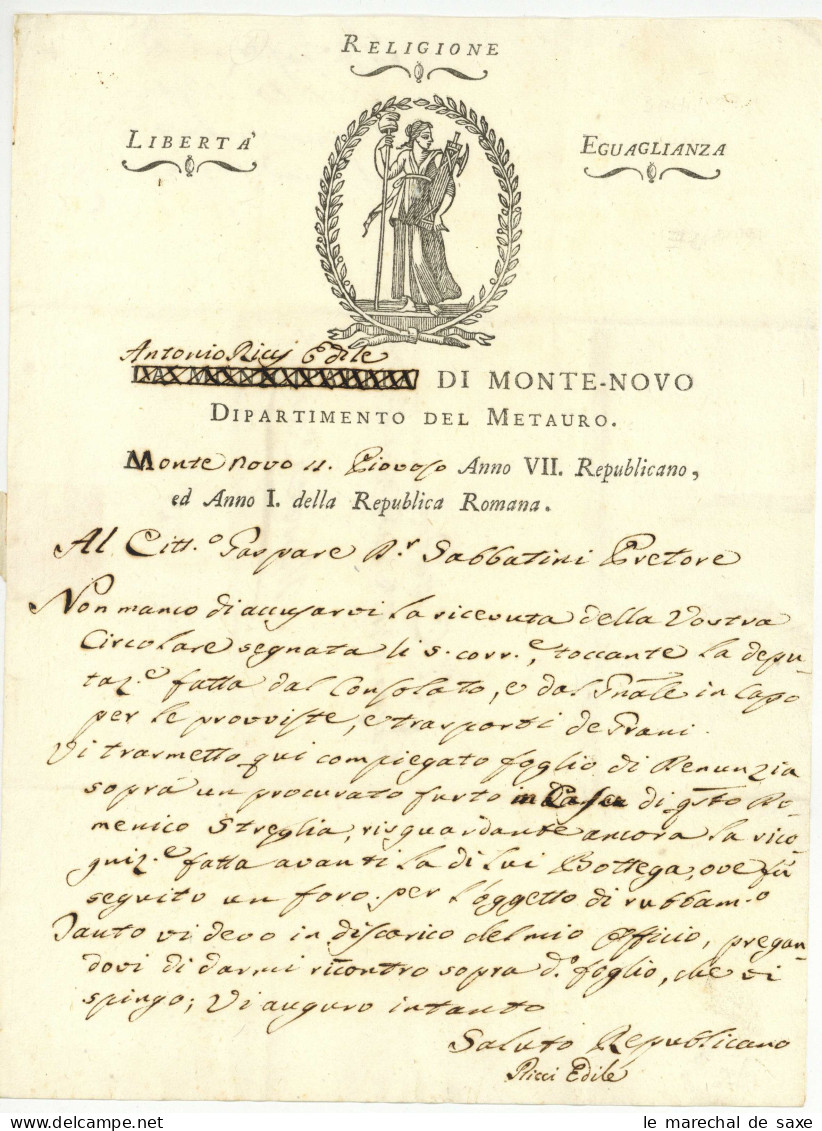 RELIGIONE
LIBERTA'
EGUAGLIANZA
Antonio Ricci Edile
DI MONTE-NOVO
DIPARTIMENTO DEL METAURO.
Monte Novo 11. Piovoso Anno VII. Republicano,
ed Anno I. della Republica Romana.
Al Citt.o Gaspare Sabbatini Pretore
Non manco di accusarvi la ricevuta della Vostra
Circolare segnata li 5. corr.e, toccante la depu-
taz.e fatta dal Consolato, e dal Gnāle in Capo
per le provviste, e trasporti de Grani.
Vi trasmetto qui compiegato foglio di Denunzia
sopra un procurato furto in Casa di qsto Do-
menico Streglia, risguardante ancora la rico-
gniz.e fatta avanti la di lui Bottega, ove fù
seguito un foro per l'oggetto di rubbam.o
Tanto vi devo in discarico del mio Officio, pregan-
dovi di darmi riscontro sopra d.o foglio, che vi
spingo; Vi auguro intanto
Saluto Republicano
Ricci Edile
le marechal de saxe